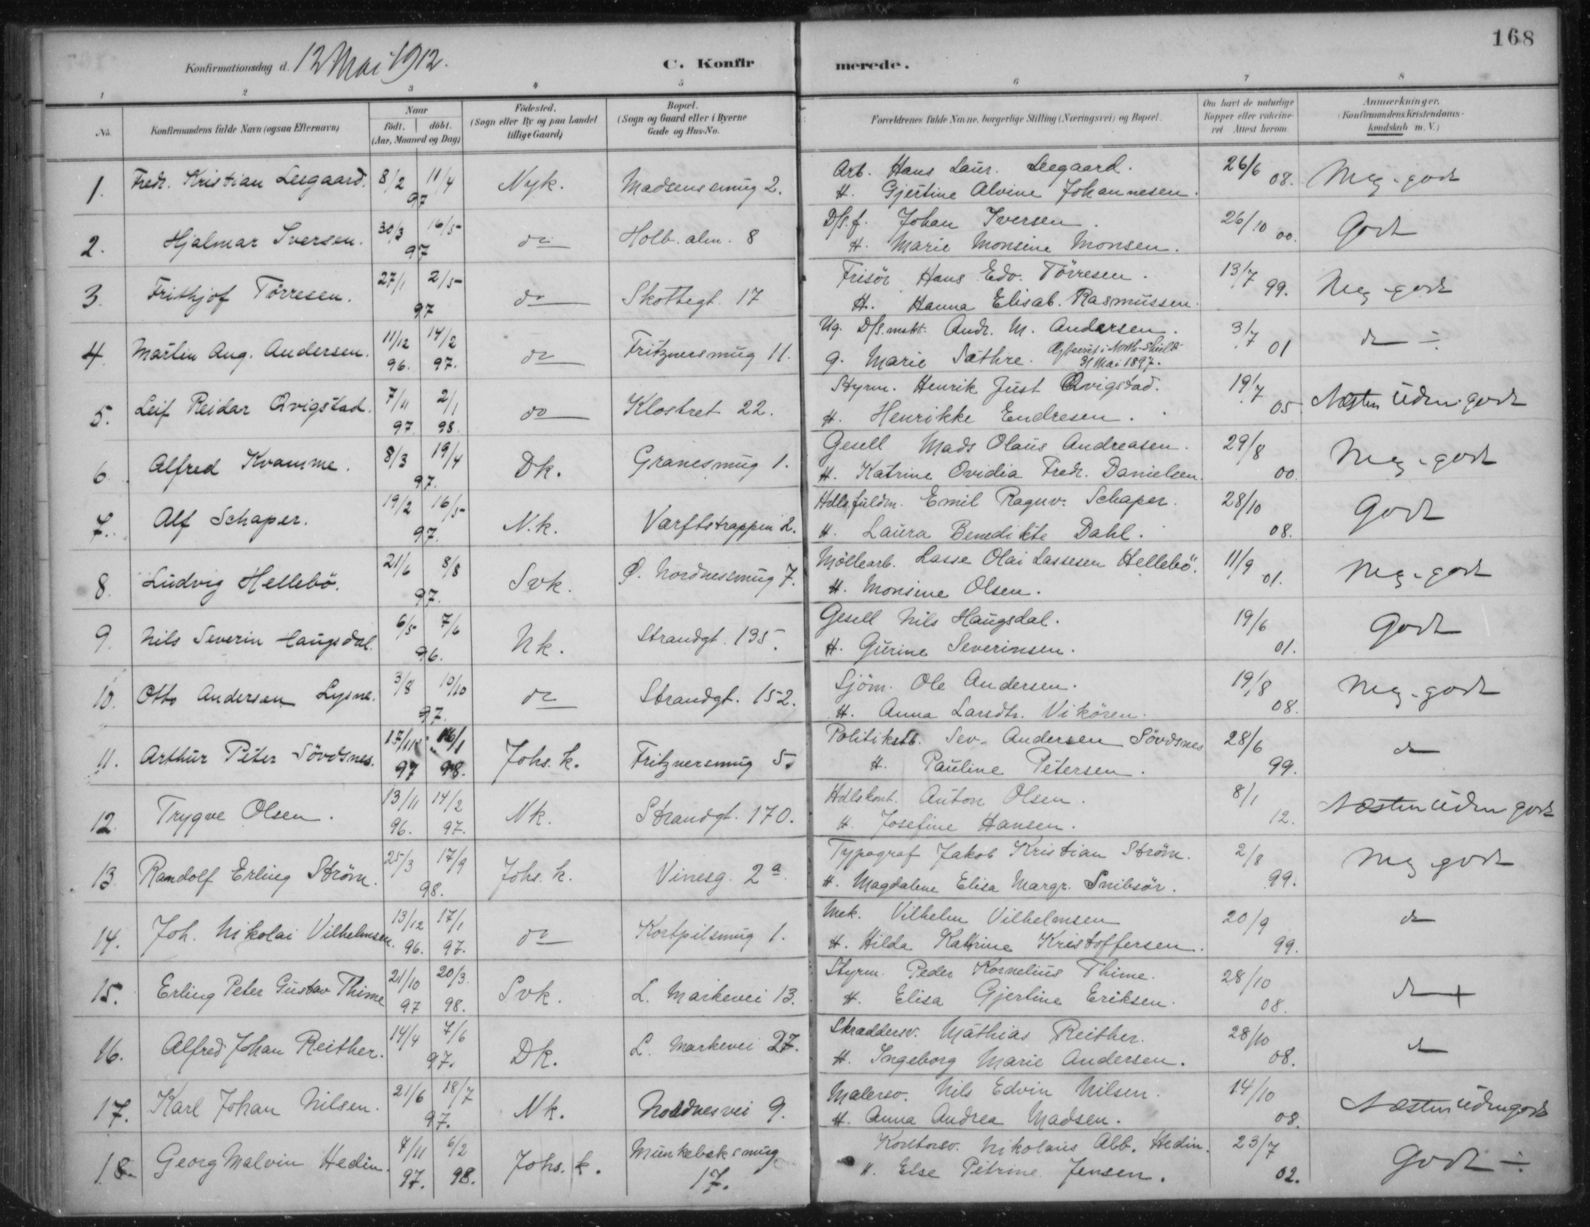 168
Konfirmationsdag d. 12 Mai 1912.
C. Konfir merede.
1 2 3 4 5 6 7 8
No.
Konfirmandens fulde Navn (ogsaa Efternavn)
Naar
født. døbt.
(Aar, Maaned og Dag)
Fødested.
(Sogn eller By og paa Landet
tillige Gaard)
Bopæl.
(Sogn og Gaard eller i Byerne
Gade og Hus-No.
Forældrenes fulde Navne, borgerlige Stilling (Næringsvei) og Bopæl.
Om havt de naturlige
Kopper eller vakcine-
ret Attest herom.
Anmærkninger.
(Konfirmandens Kristendoms-
kundskab m. V.)
1. Fredr. Kristian Leegaard. 8/2 11/4 97 Nyk. Madsensmug 2. Arb. Hans Laur. Leegaard. 26/6 08. Meg. godt
H. Gjertine Alvine Johannesen.
2. Hjalmar Iversen. 30/3 16/5 97 do Holb. alm. 8 D/s. f. Johan Iversen. 26/10 00. Godt
H. Marie Monsine Monsen.
3. Frithjof Tørresen. 27/1 2/5 97 do Skottegt. 17 Frisør Hans Edv. Tørresen. 13/7 99. Meg. godt
H. Hanna Elisab. Rasmussen.
4. Martin Aug. Andersen. 11/12 96. 14/2 97. do Fritznersmug 11. Ug. D/s. matr. Andr. M. Andersen. 3/7 01 do ÷
g. Marie Sæthre. i North-Shields
31 Mai 1897.
5. Leif Reidar Qvigstad. 7/11 97 2/1 98 do Klostret 22. Styrm. Henrik Just Qvigstad. 19/7 05 Næsten uden godt
H. Henrikke Endresen.
6 Alfred Kvamme. 8/3 19/4 97. Dk. Granesmug 1. Gesell Mads Olaus Andreasen. 29/8 00. Meg. godt
H. Katrine Ovidia Fredr. Danielsen.
7. Alf Schaper. 19/2 16/5 97. N.k. Varftstrappen 2. Hdlsfuldm. Emil Ragnv. Schaper. 28/10 08. Godt
H. Laura Benedikte Dahl.
8. Ludvig Hellebø. 21/6 8/8 97. Svk. Ø. Nordnesmug 7. Møllearb. Lasse Olai Lassesen Hellebø. 11/9 01. Meg. godt
H. Monsine Olsen.
9. Nils Severin Haugsdal. 6/5 7/6 96. Nk. Strandgt. 195. Gesell Nils Haugsdal. 19/6 01. Godt
H. Gurine Severinsen.
10. Otto Andersen Lysne. 3/8 10/10 97. do Strandgt. 152. Sjøm. Ole Andersen. 19/8 08. Meg. godt
H. Anna Larsdtr. Vikøren.
11. Arthur Peter Søvdsnes. 17/11 97 16/1 98. Johs. k. Fritznersmug 5. Politikstb. Sev. Andersen Søvdsnes 28/6 99. do
H. Pauline Petersen.
12. Trygve Olsen. 13/11 96. 14/2 97. Nk. Strandgt. 170. Hdlskont. Anton Olsen. 8/1 12. Næsten uden godt
H. Josefine Hansen.
13. Randolf Erling Strøm. 25/3 17/9 98. Johs. k. Vinesg. 2a. Typograf Jakob Kristian Strøm. 2/8 99. Meg godt
H. Magdalene Elisa Margr. Snibsør.
14. Joh. Nikolai Vilhelmsen. 13/12 96. 17/1 97. do Kortpilsmug 1. Mek. Vilhelm Vilhelmsen 20/9 99. do
H. Hilda Katrine Kristoffersen.
15. Erling Peter Gustav Thime 21/10 97 20/3 98. Svk. L. Markevei 13. Styrm. Peder Kornelius Thime. 28/10 08. do +
H. Elisa Gjertine Eriksen.
16. Alfred Johan Reither. 14/4 7/6 97. Dk. L. Markevei 27. Skraddersv. Mathias Reither. 28/10 08. do
H. Ingeborg Marie Andersen.
17. Karl Johan Nilsen. 21/6 18/7 97. Nk. Nordnesvei 9. Malersv. Nils Edvin Nilsen. 14/10 08. Næsten uden godt
H. Anna Andrea Madsen.
18. Georg Malvin Hedin. 4/11 97. 6/2 98. Johs. k. Munkebeksmug 17. Kontorsv. Nikolaus Abb. Hedin. 23/7 02. Godt ÷
H. Else Petrine Jensen.